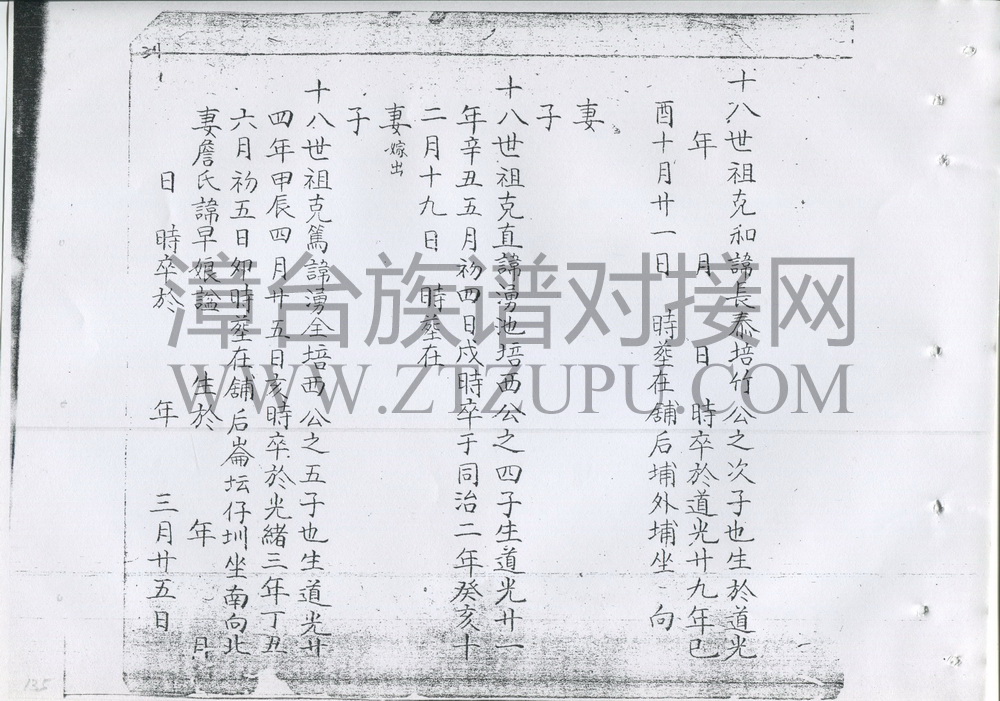 十八世祖克和諱長泰培竹公之次子也生於道光
年 月 日 時卒於道光廿九年己
酉十月廿一日 時葬在舖后埔外埔坐 向
妻
子
十八世祖克直諱湧池培西公之四子生道光廿一
年辛丑五月初四日戌時卒于同治二年癸亥十
二月十九日 時葬在
妻嫁出
子
十八世祖克篤諱湧全培西公之五子也生道光廿
四年甲辰四月廿五日亥時卒於光緒三年丁丑
六月初五日卯時葬在舖后崙坛仔圳坐南向北
妻詹氏諱早娘謚 生於 年 月
日 時卒於 年 三月廿五日
漳台族谱对接网
WWW.ZTZUPU.COM
135